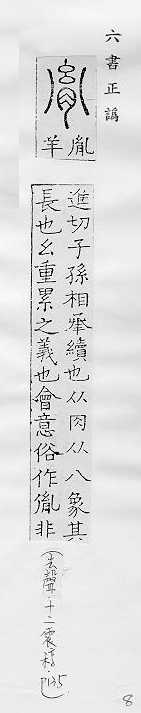 六書正譌
胤
胤
羊
進切子孫相承續也从肉从八象其
長也幺重累之義也會意俗作非
(去聲·十二震稕·p135)
8